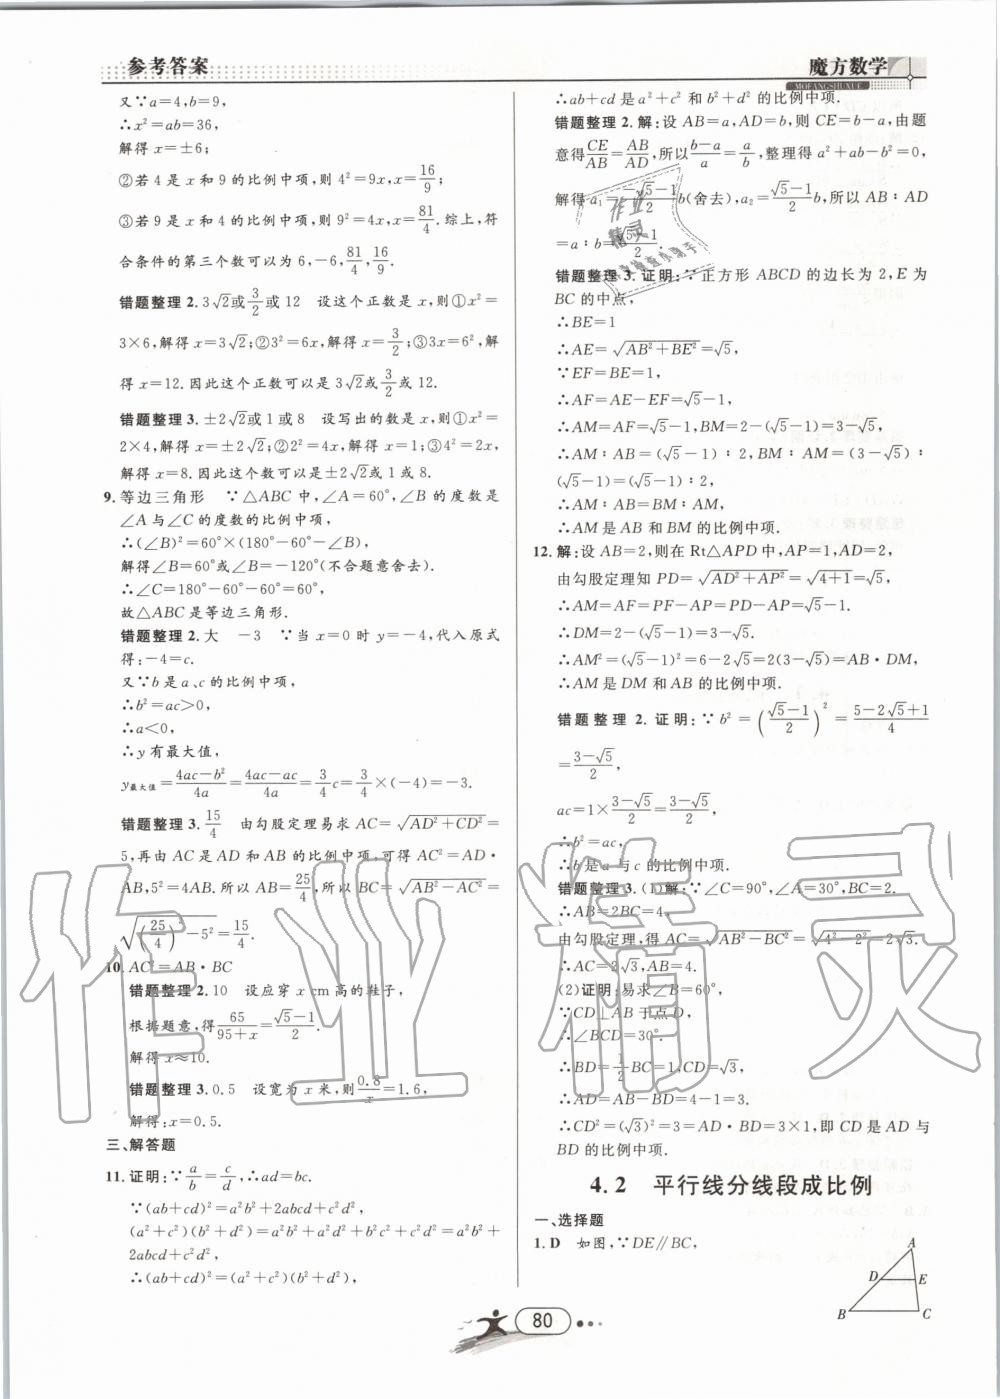 参考答案
魔方数学
MOFANGSHUXUE
又∵a=4,b=9,
∴x²=ab=36,
解得 x=±6;
②若 4 是 x 和 9 的比例中项,则 4²=9x,x=16/9;
③若 9 是 x 和 4 的比例中项,则 9²=4x,x=81/4.综上,符
合条件的第三个数可以为 6,-6,81/4,16/9.
错题整理 2.3√2或3/2或 12 设这个正数是 x,则①x²=
3×6,解得 x=3√2;②3²=6x,解得 x=3/2;③3x=6²,解
得 x=12.因此这个正数可以是 3√2或3/2或 12.
错题整理 3.±2√2或 1 或 8 设写出的数是 x,则①x²=
2×4,解得 x=±2√2;②2²=4x,解得 x=1;③4²=2x,
解得 x=8.因此这个数可以是±2√2或 1 或 8.
9.等边三角形 ∵△ABC 中,∠A=60°,∠B 的度数是
∠A 与∠C 的度数的比例中项,
∴(∠B)²=60°×(180°-60°-∠B),
解得∠B=60°或∠B=-120°(不合题意舍去).
∴∠C=180°-60°-60°=60°,
故△ABC 是等边三角形.
错题整理 2.大 -3 ∵当 x=0 时 y=-4,代入原式
得:-4=c.
又∵b 是 a、c 的比例中项,
∴b²=ac>0,
∴a<0,
∴y 有最大值,
y最大值=(4ac-b²)/4a=(4ac-ac)/4a=3/4c=3/4×(-4)=-3.
错题整理 3.15/4 由勾股定理易求 AC=√(AD²+CD²)=
5,再由 AC 是 AD 和 AB 的比例中项,可得 AC²=AD·
AB,5²=4AB.所以 AB=25/4,所以 BC=√(AB²-AC²)=
√((25/4)²-5²)=15/4.
10.AC²=AB·BC
错题整理 2.10 设应穿 x cm 高的鞋子,
根据题意,得65/(95+x)=(√5-1)/2.
解得 x≈10.
错题整理 3.0.5 设宽为 x 米,则0.8/x=1.6,
解得:x=0.5.
三、解答题
11.证明:∵a/b=c/d,∴ad=bc.
∵(ab+cd)²=a²b²+2abcd+c²d²,
(a²+c²)(b²+d²)=a²b²+a²d²+b²c²+c²d²=a²b²+
2abcd+c²d²,
∴(ab+cd)²=(a²+c²)(b²+d²),
∴ab+cd 是 a²+c² 和 b²+d² 的比例中项.
错题整理 2.解:设 AB=a,AD=b,则 CE=b-a,由题
意得CE/AB=AB/AD,所以(b-a)/a=a/b,整理得 a²+ab-b²=0,
解得 a₁=(-√5-1)/2b(舍去),a₂=(√5-1)/2b,所以 AB∶AD
=a∶b=(√5-1)/2.
错题整理 3.证明:∵正方形 ABCD 的边长为 2,E 为
BC 的中点,
∴BE=1
∴AE=√(AB²+BE²)=√5,
∵EF=BE=1,
∴AF=AE-EF=√5-1,
∴AM=AF=√5-1,BM=2-(√5-1)=3-√5,
∴AM∶AB=(√5-1)∶2,BM∶AM=(3-√5)∶
(√5-1)=(√5-1)∶2,
∴AM∶AB=BM∶AM,
∴AM 是 AB 和 BM 的比例中项.
12.解:设 AB=2,则在 Rt△APD 中,AP=1,AD=2,
由勾股定理知 PD=√(AD²+AP²)=√(4+1)=√5,
∴AM=AF=PF-AP=PD-AP=√5-1.
∴DM=2-(√5-1)=3-√5.
∴AM²=(√5-1)²=6-2√5=2(3-√5)=AB·DM,
∴AM 是 DM 和 AB 的比例中项.
错题整理 2.证明:∵b²=((√5-1)/2)²=(5-2√5+1)/4
=(3-√5)/2,
ac=1×(3-√5)/2=(3-√5)/2,
∴b²=ac,
∴b 是 a 与 c 的比例中项.
错题整理 3.(1)解:∵∠C=90°,∠A=30°,BC=2.
∴AB=2BC=4,
由勾股定理,得 AC=√(AB²-BC²)=√(4²-2²)=2√3.
∴AC=2√3,AB=4.
(2)证明:易求∠B=60°,
∵CD⊥AB 于点 D,
∴∠BCD=30°.
∴BD=1/2BC=1,CD=√3,
∴AD=AB-BD=4-1=3.
∴CD²=(√3)²=3=AD·BD=3×1,即 CD 是 AD 与
BD 的比例中项.
4.2 平行线分线段成比例
一、选择题
1.D 如图,∵DE∥BC,
A
D
E
B
C
80
作业精灵
作业
精灵